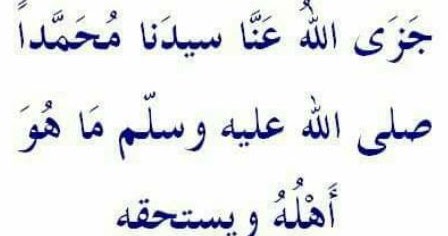 جَزَى اللهُ عَنَّا سيدَنا مُحَمَّداً
صلى الله عليه وسلّم مَا هُوَ
أَهْلُهُ ويستحقه